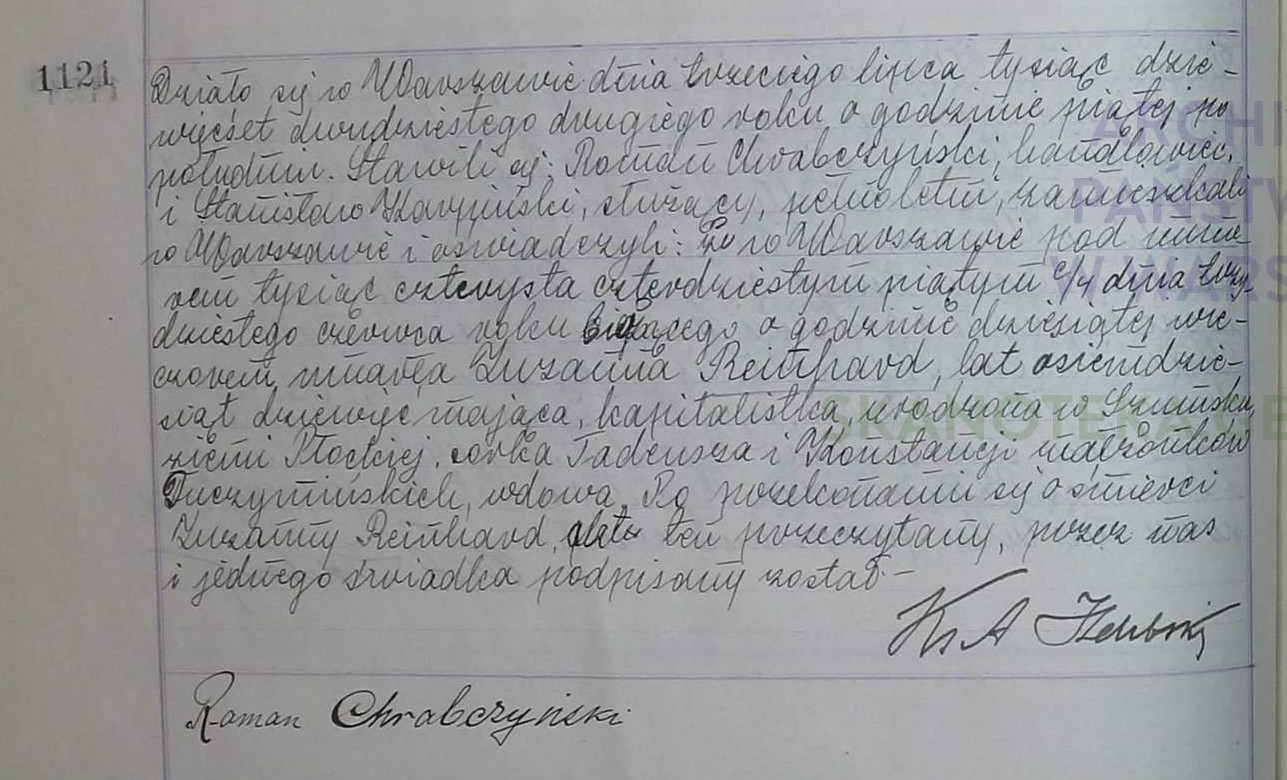 1121
Działo się w Warszawie dnia trzeciego lipca tysiąc dzie-
więćset dwudziestego drugiego roku o godzinie piątej po
południu. Stawili się: Roman Chrabczyński, handlowiec,
i Stanisław Karpiński, służący, pełnoletni, zamieszkali
w Warszawie i oświadczyli: że w Warszawie pod nume
rem tysiąc czterysta czterdziestym piątym c/4 dnia trzy
dziestego czerwca roku bieżącego o godzinie dziesiątej wie-
czorem, umarła Zuzanna Reinhard, lat osiemdzie-
siąt dziewięć mająca, kapitalistka, urodzona w Szumsku,
ziemi Płockiej, córka Tadeusza i Konstancji małżonków
Tuczymińskich, wdowa. Po przekonaniu się o śmierci
Zuzanny Reinhard, akt ten przeczytany, przez nas
i jednego świadka podpisany został.-
Ks A
Roman Chrabczyński
ARCHI
PAŃSTW
W WARS
SKANOTEKA GE